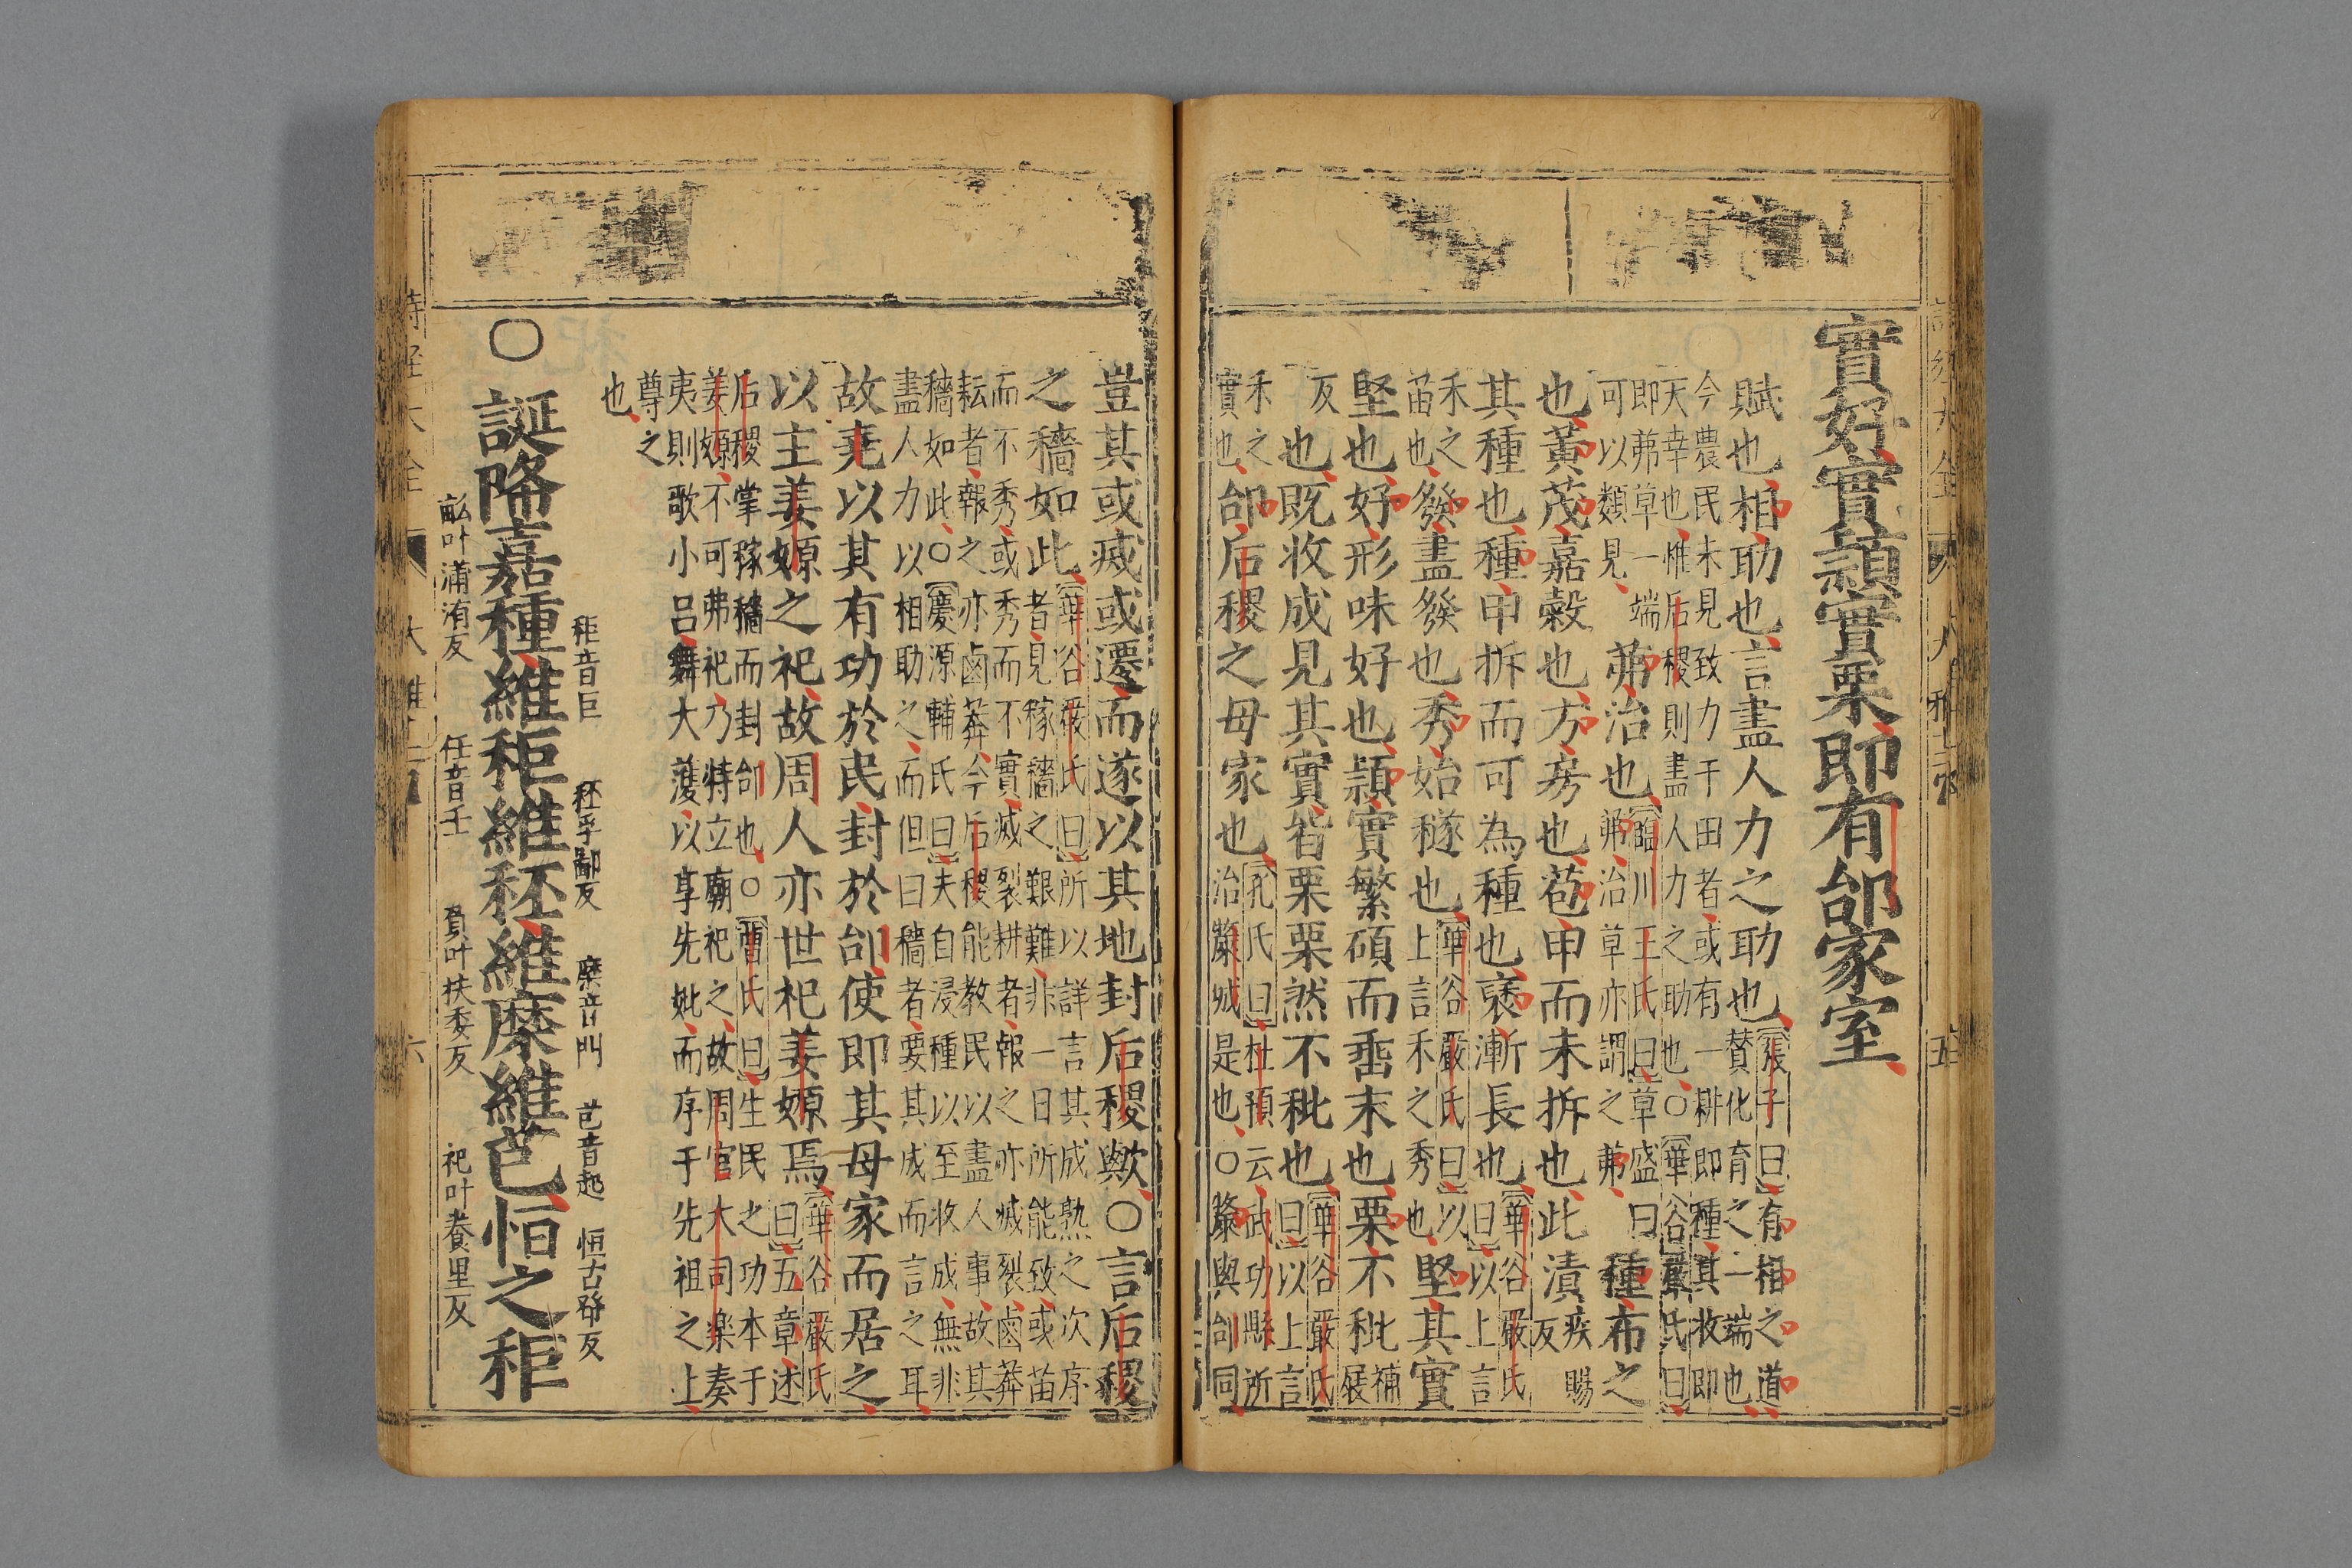 實好實穎實栗即有邰家室
賦也相助也言盡人力之助也張子曰有相之道
贊化育之一端也
今農民未見致力于田者或有一耕即種其收即
天幸也惟后稷則盡人力之助也○華谷嚴氏曰
即茀草一端
可以類見
茀治也
臨川王氏曰草盛曰
茀治草亦謂之茀
種布之
也黃茂嘉穀也方房也苞甲而未拆也此漬疾賜
反
其種也種甲拆而可為種也褎漸長也華谷嚴氏
曰以上言
禾之
苗也
發盡發也秀始穟也華谷嚴氏曰以
上言禾之秀也
堅其實
堅也好形味好也穎實繁碩而垂末也栗不秕補
展
反
也既收成見其實皆栗栗然不秕也華谷嚴氏
曰以上言
禾之
實也
邰后稷之母家也孔氏曰杜預云武功縣所
治漦城是也○漦與邰同
豈其或㓕或遷而遂以其地封后稷歟○言后稷
之穡如此華谷嚴氏曰所以詳言其成熟之次序
者見稼穡之艱難非一日所能致或苗
而不秀或秀而不實㓕裂耕者報之亦㓕裂鹵莽
耘者報之亦鹵莽今后稷能教民以盡人事故其
穡如此○慶源輔氏曰夫自浸種以至收成無非
盡人力以相助之而但曰穡者要其成而言之耳
故堯以其有功於民封於邰使即其母家而居之
以主姜嫄之祀故周人亦世祀姜嫄焉華谷嚴氏
曰五章述
后稷掌稼穡而封邰也○曹氏曰生民之功本于
姜嫄不可弗祀乃特立廟祀之故周官大司樂奏
夷則歌小呂舞大濩以享先妣而序于先祖之上
尊之
也
秬音巨 秠孚鄙反 穈音門 芑音起 恒古鄧反
○誕降嘉種維秬維秠維穈維芑恒之秬
畝叶滿洧反 任音壬 負叶扶委反 祀叶養里反